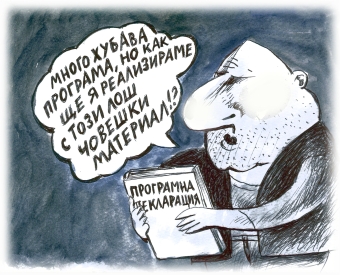 МНОГО ХУБАВА
ПРОГРАМА, НО КАК
ЩЕ Я РЕАЛИЗИРАМЕ
С ТОЗИ ЛОШ
ЧОВЕШКИ
МАТЕРИАЛ!?
ПРОГРАМНА
ДЕКЛАРАЦИЯ